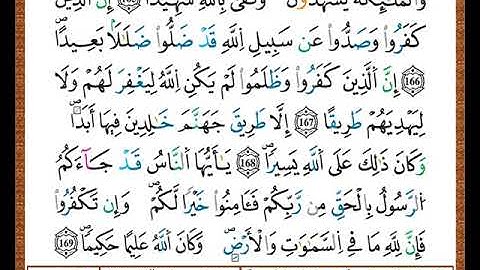 وَٱلْمَلَـٰٓئِكَةُ يَشْهَدُونَ وَكَفَىٰ بِٱللَّهِ شَهِيدًا إِنَّ ٱلَّذِينَ
كَفَرُوا۟ وَصَدُّوا۟ عَن سَبِيلِ ٱللَّهِ قَدْ ضَلُّوا۟ ضَلَـٰلَۢا بَعِيدًا
166 إِنَّ ٱلَّذِينَ كَفَرُوا۟ وَظَلَمُوا۟ لَمْ يَكُنِ ٱللَّهُ لِيَغْفِرَ لَهُمْ وَلَا
لِيَهْدِيَهُمْ طَرِيقًا 167 إِلَّا طَرِيقَ جَهَنَّمَ خَـٰلِدِينَ فِيهَآ أَبَدًا
وَكَانَ ذَٰلِكَ عَلَى ٱللَّهِ يَسِيرًا 168 يَـٰٓأَيُّهَا ٱلنَّاسُ قَدْ جَآءَكُمُ
ٱلرَّسُولُ بِٱلْحَقِّ مِن رَّبِّكُمْ فَـَٔامِنُوا۟ خَيْرًا لَّكُمْ وَإِن تَكْفُرُوا۟
فَإِنَّ لِلَّهِ مَا فِى ٱلسَّمَـٰوَٰتِ وَٱلْأَرْضِ وَكَانَ ٱللَّهُ عَلِيمًا حَكِيمًا 169